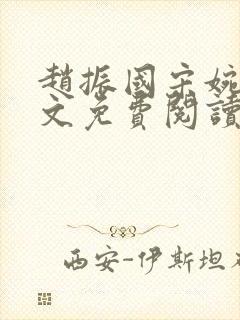 趙振國宋婉
文免費閱讀
西安-伊斯坦